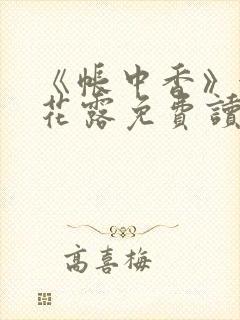 《帐中香》
花露免費讀
高喜梅